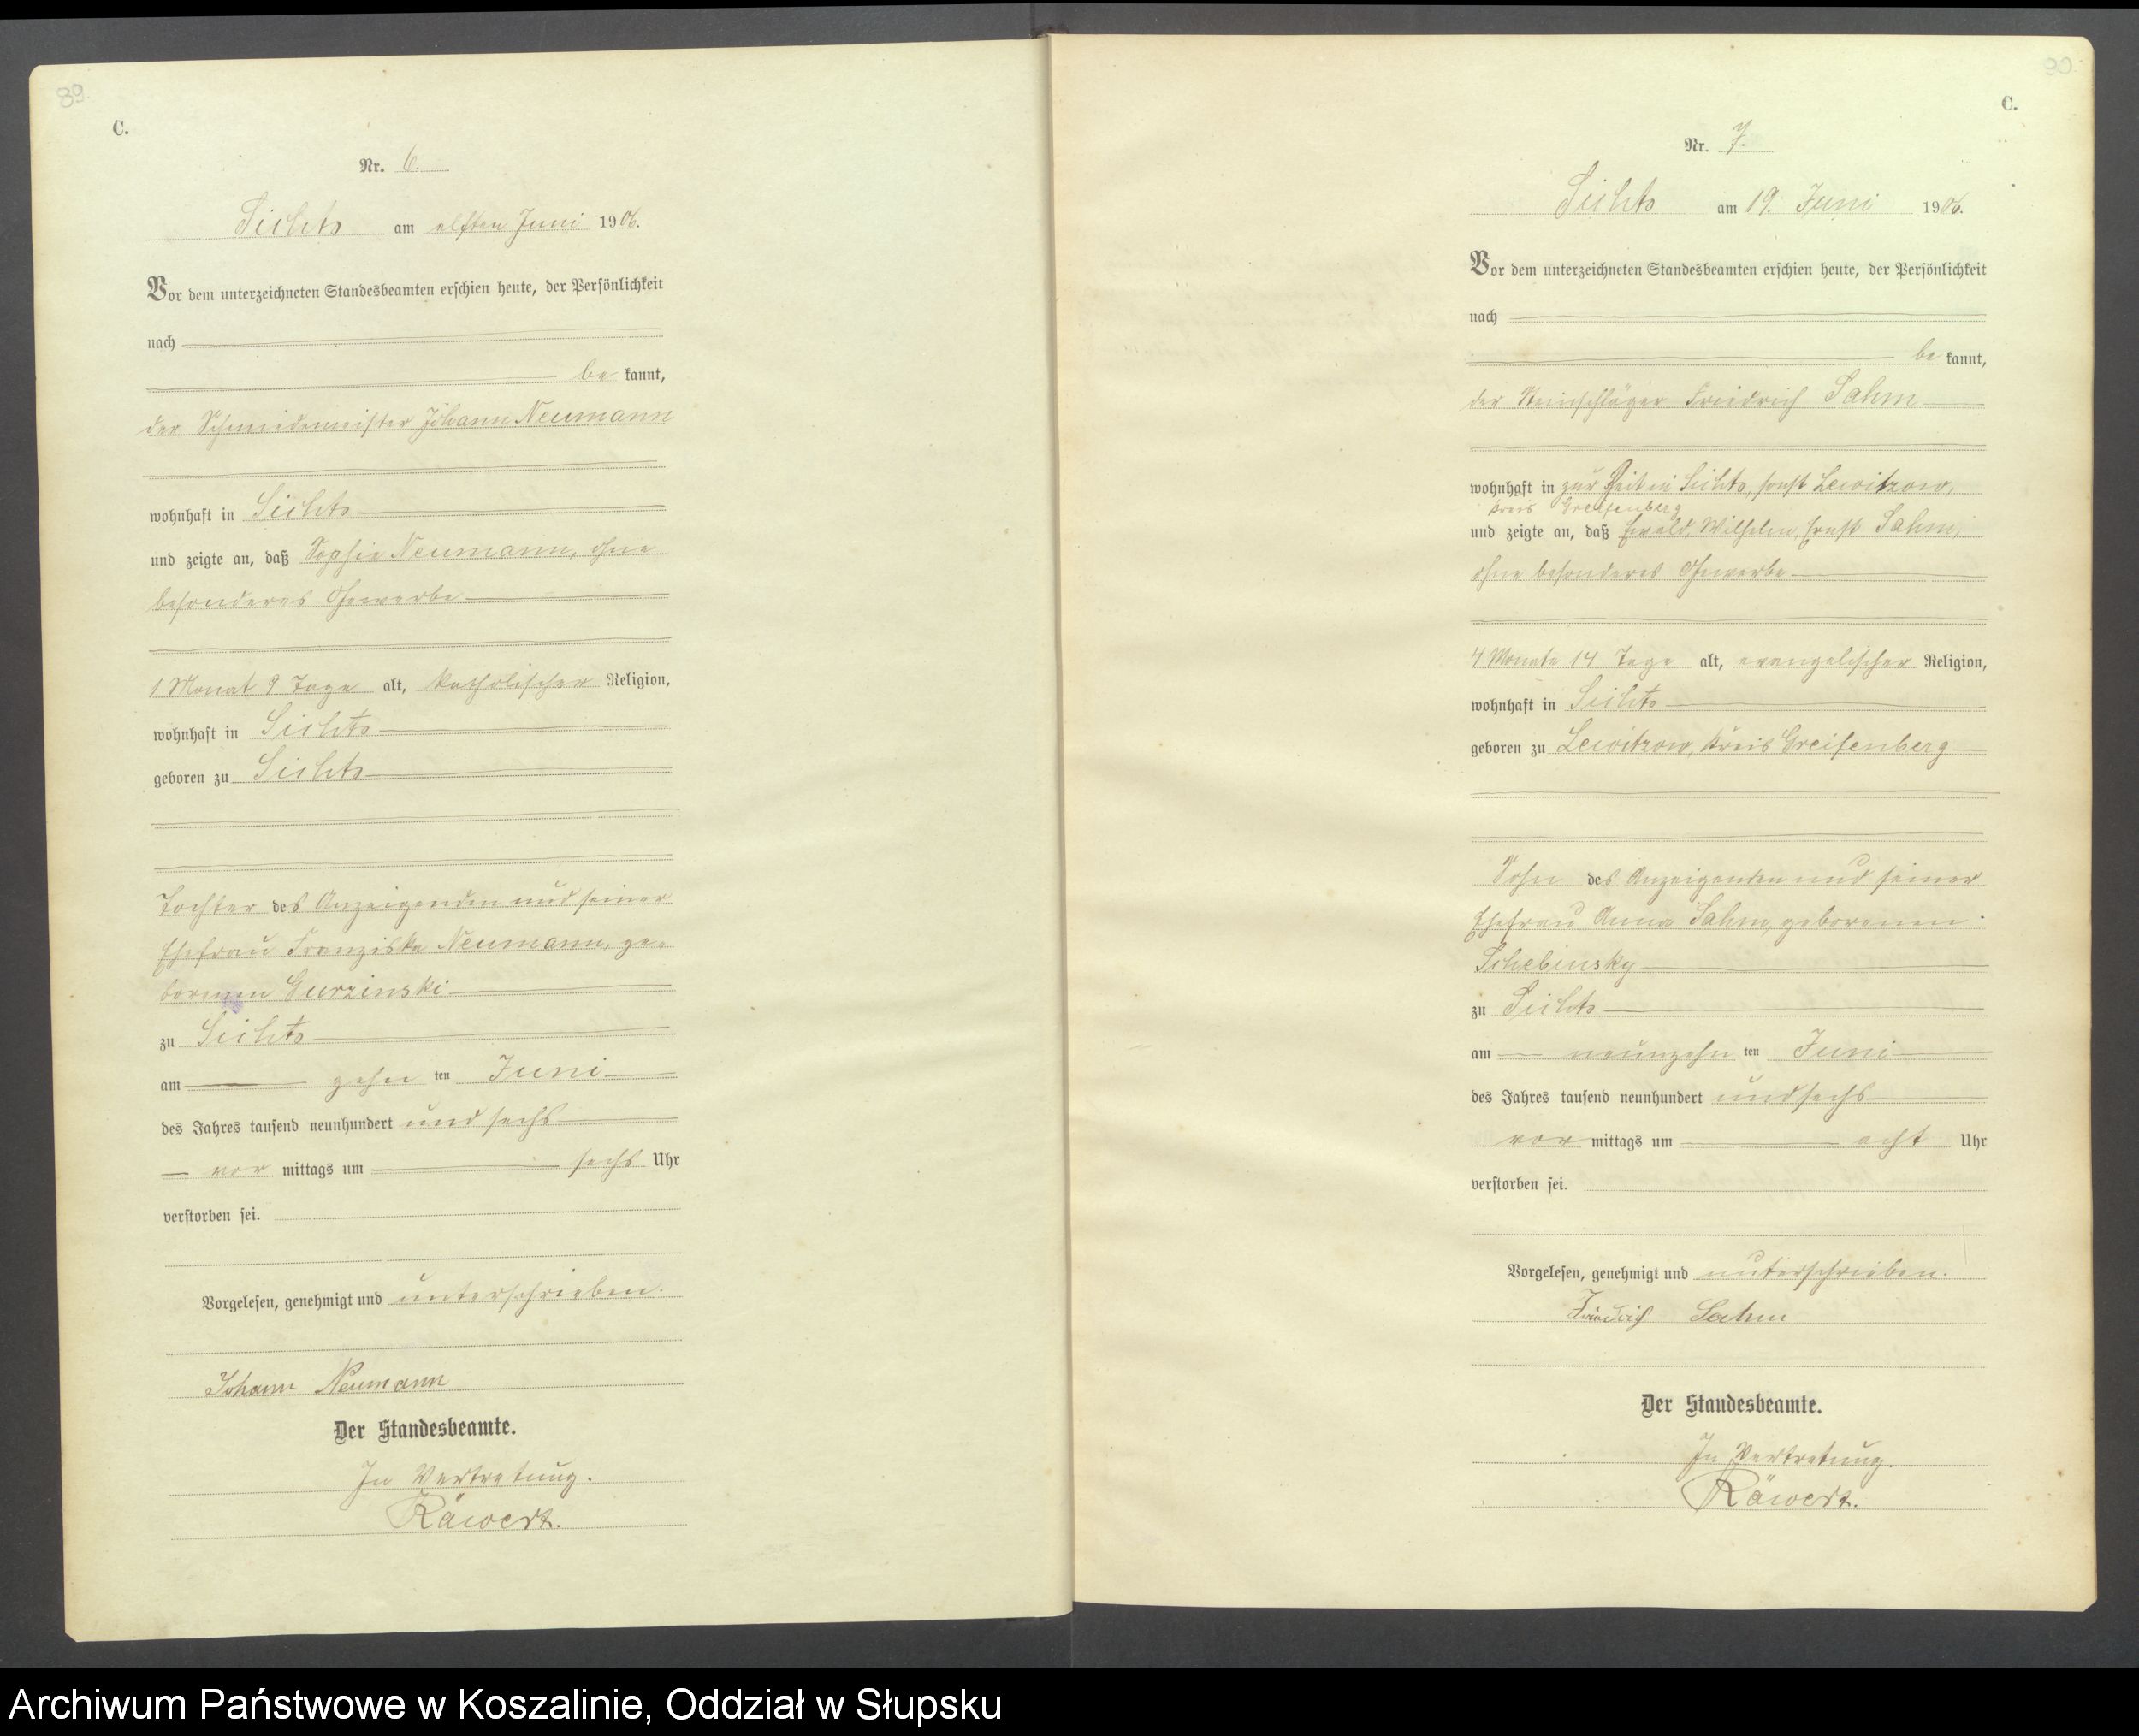 89.
C.
Nr. 6.
Sichts am elften Juni 1906.
Vor dem unterzeichneten Standesbeamten erschien heute, der Persönlichkeit
nach
be kannt,
der Schmiedemeister Johann Neumann
wohnhaft in Sichts
und zeigte an, daß Sophie Neumann, ohne
besonderes Gewerbe
1 Monat 9 Tage alt, katholischer Religion,
wohnhaft in Sichts
geboren zu Sichts
Tochter des Anzeigenden und seiner
Ehefrau Franziska Neumann, ge-
borenen Gurzinski
zu Sichts
am zehn ten Juni
des Jahres tausend neunhundert und sechs
vor mittags um sechs Uhr
verstorben sei.
Vorgelesen, genehmigt und unterschrieben.
Johann Neumann
Der Standesbeamte.
In Vertretung.
Räwert.
90.
C.
Nr. 7.
Sichts am 19. Juni 1906.
Vor dem unterzeichneten Standesbeamten erschien heute, der Persönlichkeit
nach
be kannt,
der Steinschläger Friedrich Sahm
wohnhaft in zur Zeit in Sichts, sonst Lewitzow,
Kreis Greifenberg
und zeigte an, daß Ewald, Wilhelm, Ernst Sahm,
ohne besonderes Gewerbe
4 Monate 14 Tage alt, evangelischer Religion,
wohnhaft in Sichts
geboren zu Lewitzow, Kreis Greifenberg
Sohn des Anzeigenden und seiner
Ehefrau Anna Sahm, geborenen
Schebinsky
zu Sichts
am neunzehn ten Juni
des Jahres tausend neunhundert und sechs
vor mittags um acht Uhr
verstorben sei.
Vorgelesen, genehmigt und unterschrieben.
Friedrich Sahm
Der Standesbeamte.
In Vertretung.
Räwert.
Archiwum Państwowe w Koszalinie, Oddział w Słupsku